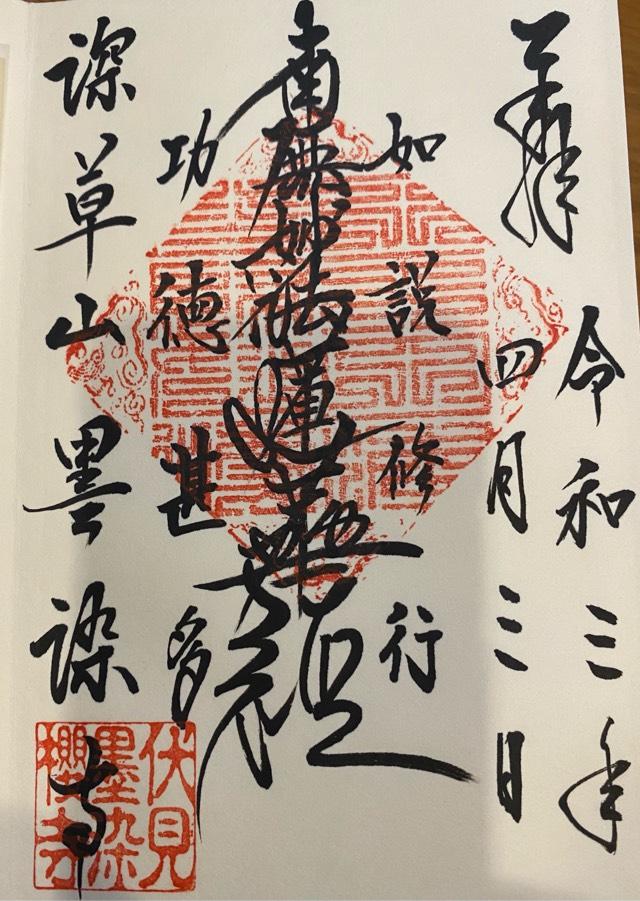 奉拝
令和三年
四月三日
如説修行
南無妙法蓮華經
功徳甚多
深草山墨染寺
伏見
墨染
櫻寺